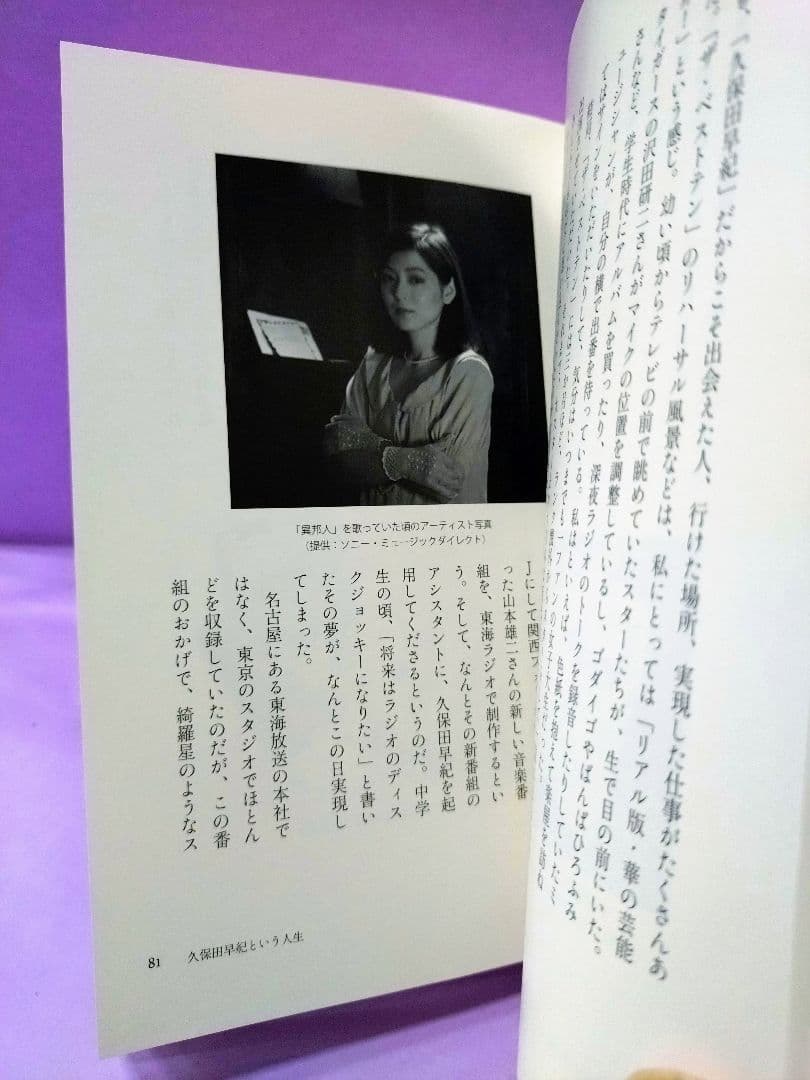 、「久保田早紀」だからこそ出会えた人、行けた場所、実現した仕事がたくさんあ
。「ザ・ベストテン」のリハーサル風景などは、私にとっては「リアル版・華の芸能
ー」という感じ。幼い頃からテレビの前で眺めていたスターたちが、生で目の前にいた。
タイガースの沢田研二さんがマイクの位置を調整しているし、ゴダイゴやばんばひろふみ
さんなど、学生時代にアルバムを買ったり、深夜ラジオのトークを録音したりしていたミ
ュージシャンが、自分の横で出番を待っている。私はといえば、色紙を抱えて楽屋を訪ね
てはサインをいただいたりして、気分はいつまでも「ファンの女子大生だった」
「異邦人」を歌っていた頃のアーティスト写真
(提供:ソニー・ミュージックダイレクト)
Jにして関西フォ
った山本雄二さんの新しい音楽番
組を、東海ラジオで制作するとい
う。そして、なんとその新番組の
アシスタントに、久保田早紀を起
用してくださるというのだ。中学
生の頃、「将来はラジオのディス
クジョッキーになりたい」と書い
たその夢が、なんとこの日実現し
てしまった。
名古屋にある東海放送の本社で
はなく、東京のスタジオでほとん
どを収録していたのだが、この番
組のおかげで、綺羅星のようなス
81 久保田早紀という人生